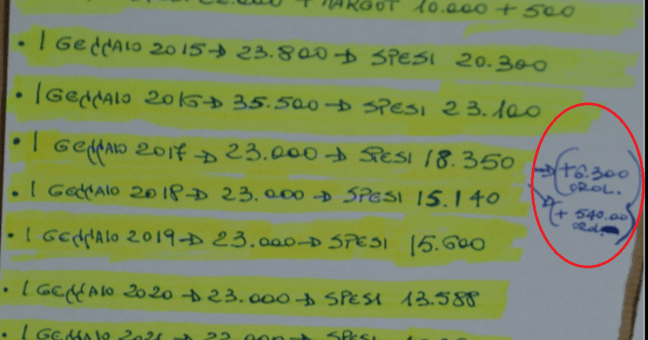 + MARGOT 10.000 + 500
• 1 GENNAIO 2015 → 23.800 → SPESI 20.300
• 1 GENNAIO 2016 → 35.500 → SPESI 23.100
• 1 GENNAIO 2017 → 23.000 → SPESI 18.350 → (+6.300
OROL.
• 1 GENNAIO 2018 → 23.000 → SPESI 15.140 → (+ 540.00
OROL.
• 1 GENNAIO 2019 → 23.000 → SPESI 15.600
• 1 GENNAIO 2020 → 23.000 → SPESI 13.588
• 1 GENNAIO 2021 → 22.000 → SPESI